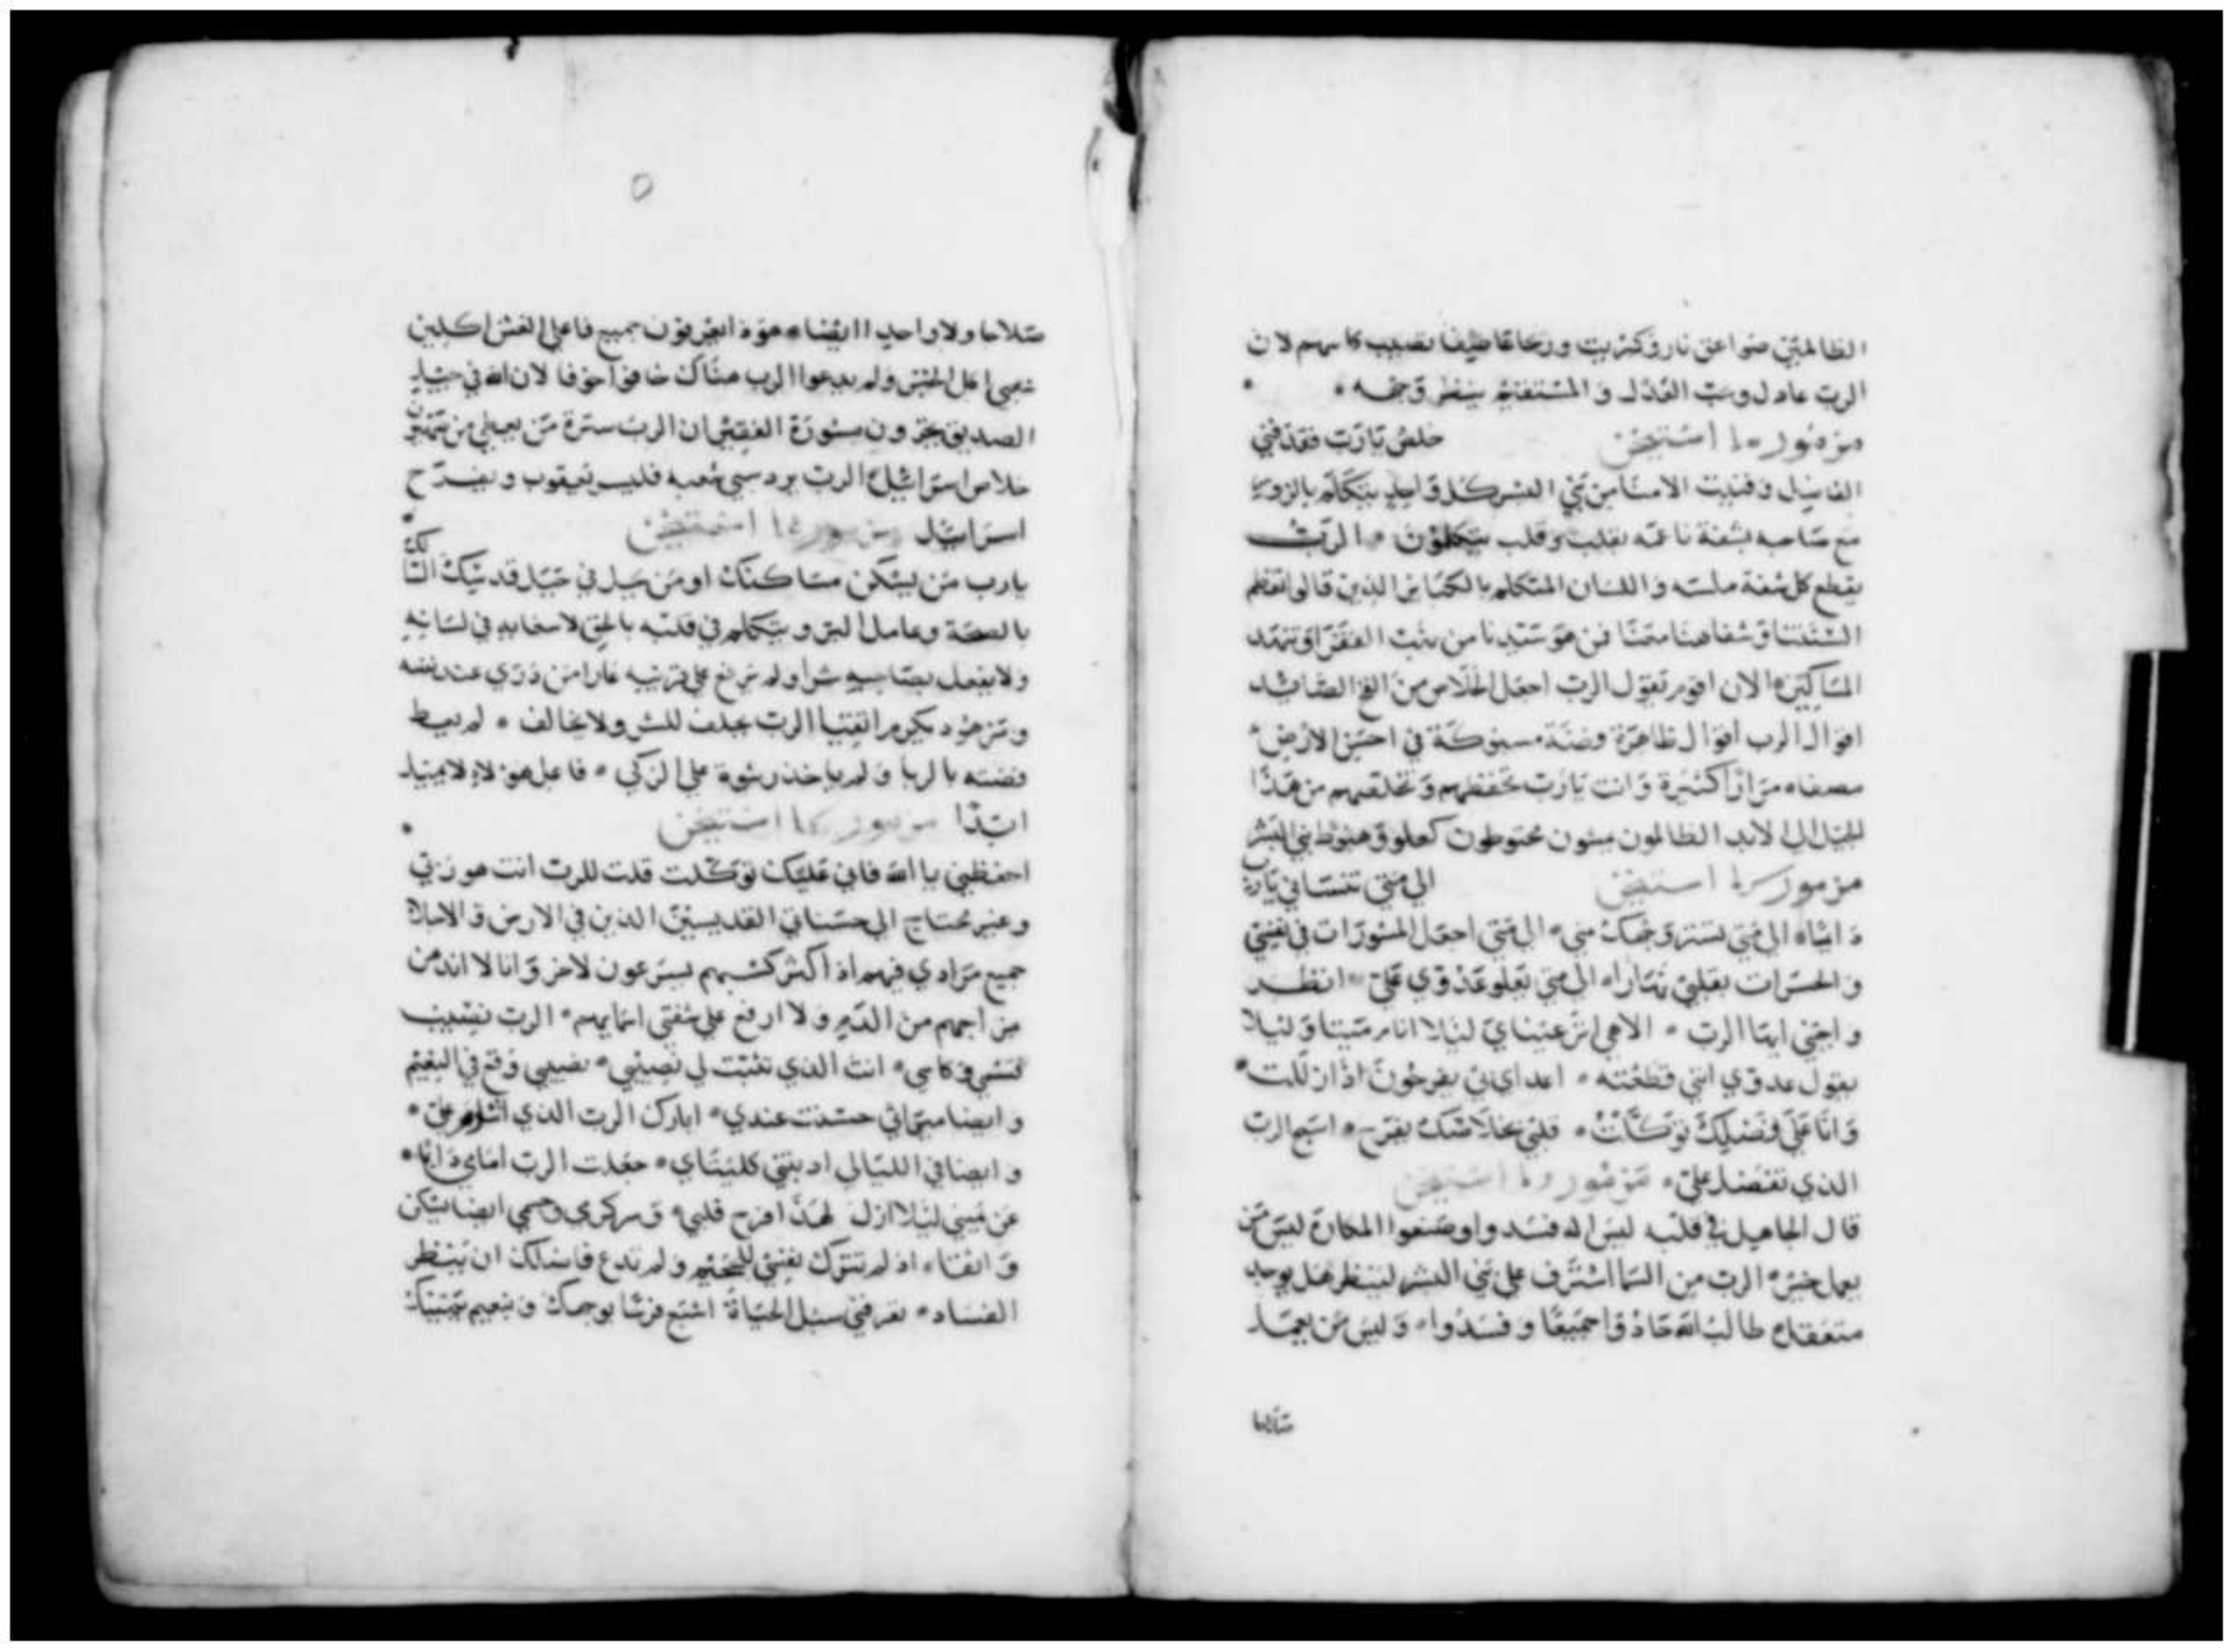 الظالمين صواعق نار وكبريت وريحا عاصفا نصيب كاسهم لان
الرب عادل ويحب العدل والمستقيم ينظر وجهه
مزمور استيخن خلصني يارب فقد فني
الفاضل وفنيت الامنا من بني البشر كل واحد يتكلم بالزور
مع صاحبه بشفة ناعمه بقلب وقلب يتكلمون الرب
يقطع كل شفة ملسه واللسان المتكلم بالكبريا الذين قالوا نعظم
السنتنا وشفاهنا معنا فمن هو سيدنا من نهب الفقرا وتنهد
المساكين الان اقوم يقول الرب اجعل الخلاص من الفخ الصايد
اقوال الرب اقوال طاهرة وفضة مسبوكة في احسن الارض
مصفاه مرارا كثيرة وانت يارب تحفظهم وتخلصهم من هذا
الجيل الى الابد الظالمون يمشون يحتوطون كعلو وهبوط بني البشر
مزمور استيخن الي متي تنساني يارب
دايماه الي متي تستر وجهك مني الي متي اجعل المشورات في نفسي
والحسرات بقلبي نهارا الي متي يعلو عدوي علي انظر
واجبني ايها الرب الاهي انر عيناي ليلا انام ميتا وليلا
يقول عدوي اني قطعته اعداي بي يفرحون اذا زللت
وانا علي فضلك توكلت قلبي بخلاصك يفرح اسبح الرب
الذي تفضل علي مزمور استيخن
قال الجاهل في قلبه ليس اله فسدوا وصنعوا المكاره ليس من
يعمل خير الرب من السما اشرف على بني البشر لينظر هل يوجد
متعقل طالب الله حادوا جميعا وفسدوا وليس من يعمل
صلاحا
صلاحا ولا واحد ايضا يعرفون جميع فاعلي الغش اكلين
شعبي اكل الخبز ولم يدعوا الرب هناك خافوا خوفا لان الله في جيل
الصديق يخزون مشورة الفقير ان الرب سترة من يعطي من صهيون
خلاص اسرائيل الرب يرد سبي شعبه فليسر يعقوب ويفرح
اسرائيل مزمور استيخن
يارب من يسكن مساكنك او من يحل في جبل قدسك السالك
بالصحة وعامل البر ويتكلم في قلبه بالحق لا سخابه في لسانه
ولا يفعل بصاحبه شرا ولم يرفع علي قريبه عارا من ذري عند نفسه
يكرم اتقيا الرب يحلف للشر ولا يخالف لم يعط
فضته بالربا ولم ياخذ رشوة علي الزكي فاعل هولاء لا يميل
ابدا مزمور استيخن
احفظني يا الله فاني عليك توكلت قلت للرب انت هو ربي
وغير محتاج الي حسناتي القديسين الذين في الارض
جميع مرادي فيهم اذ اكثر كسبهم يسرعون لاخر وانا لا اندمن
من اجهم من الدم ولا ارفع علي شفتي اسمايهم الرب نصيب
وكاسي انت الذي تثبت لي نصيبي نصيبي وقع في النعيم
وايضا ميراثي حسنت عندي ابارك الرب الذي اشار علي
وايضا في الليالي ادبتني كليتاي جعلت الرب امامي دايما
عن يميني ليلا ازل لهذا افرح قلبي وجسمي ايضا يسكن
اذ لم تترك نفسي للجحيم ولم تدع فاضلك ان ينظر
الفساد تعرفني سبل الحياة اشبع فرحا بوجهك ونعيم يمينك